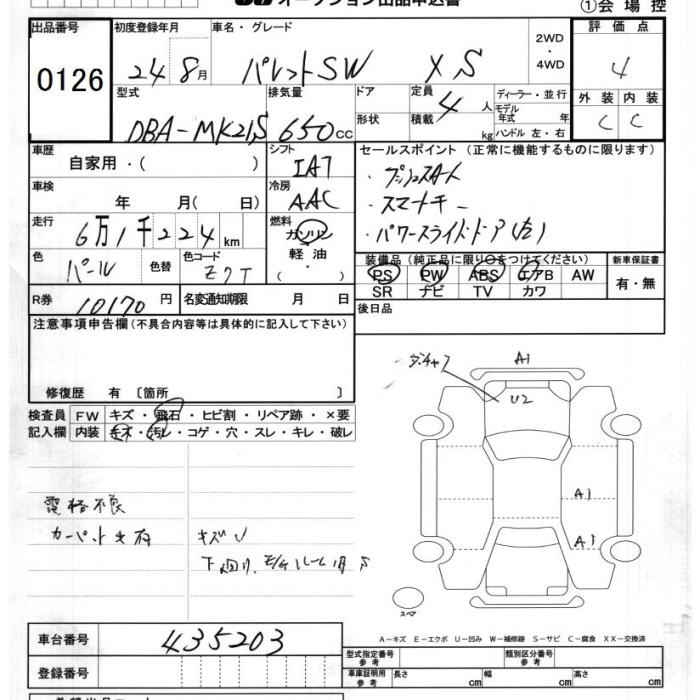 オークション出品申込書
①会場控
出品番号 0126
初度登録年月 24 8月
車名・グレード パレットSW XS
2WD・4WD
評価点 4
外装 C 内装 C
型式 DBA-MK21S
排気量 650cc
ドア 形状
定員 4人
積載 kg
ディーラー・並行
モデル年式 年
ハンドル 左・右
車歴 自家用・( )
シフト IAT
セールスポイント (正常に機能するものに限ります)
・プッシュスタート
・スマートキー
・パワースライドドア(左)
車検 年 月( 日)
冷房 AAC
走行 6万1千224km
燃料 ガソリン・軽油・( )
色 パール 色替
色コード Z7T
装備品 (純正品に限り○をつけてください)
PS PW ABS エアB AW
SR ナビ TV カワ
新車保証書 有・無
R券 10170円
名変通知期限 月 日
後日品
注意事項申告欄(不具合内容等は具体的に記入して下さい)
修復歴 有 〔箇所 〕
検査員記入欄
FW キズ・飛石・ヒビ割・リペア跡・×要
内装 キズ・汚レ・コゲ・穴・スレ・キレ・破レ
電格不良
カーペット
キズ
下廻り
A1
U2
A1
A1
スペア
A-キズ E-エクボ U-凹み W-補修跡 S-サビ C-腐食 XX-交換済
車台番号 435203
登録番号
型式指定番号 参考
類別区分番号 参考
車庫証明用 参考 長さ cm 幅 cm 高さ cm